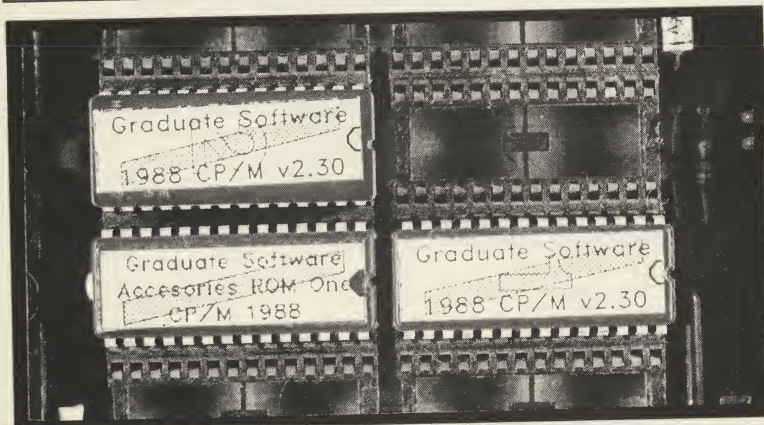 Graduate Software
1988 CP/M v2.30
Graduate Software
Accesories ROM One
CP/M 1988
Graduate Software
1988 CP/M v2.30